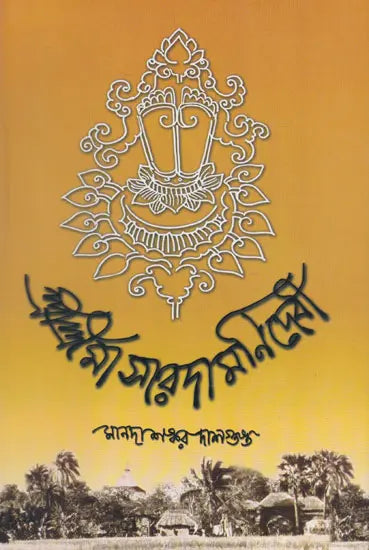 শ্রীশ্রীমা সারদামণি দেবী
মানদাশঙ্কর দাশগুপ্ত